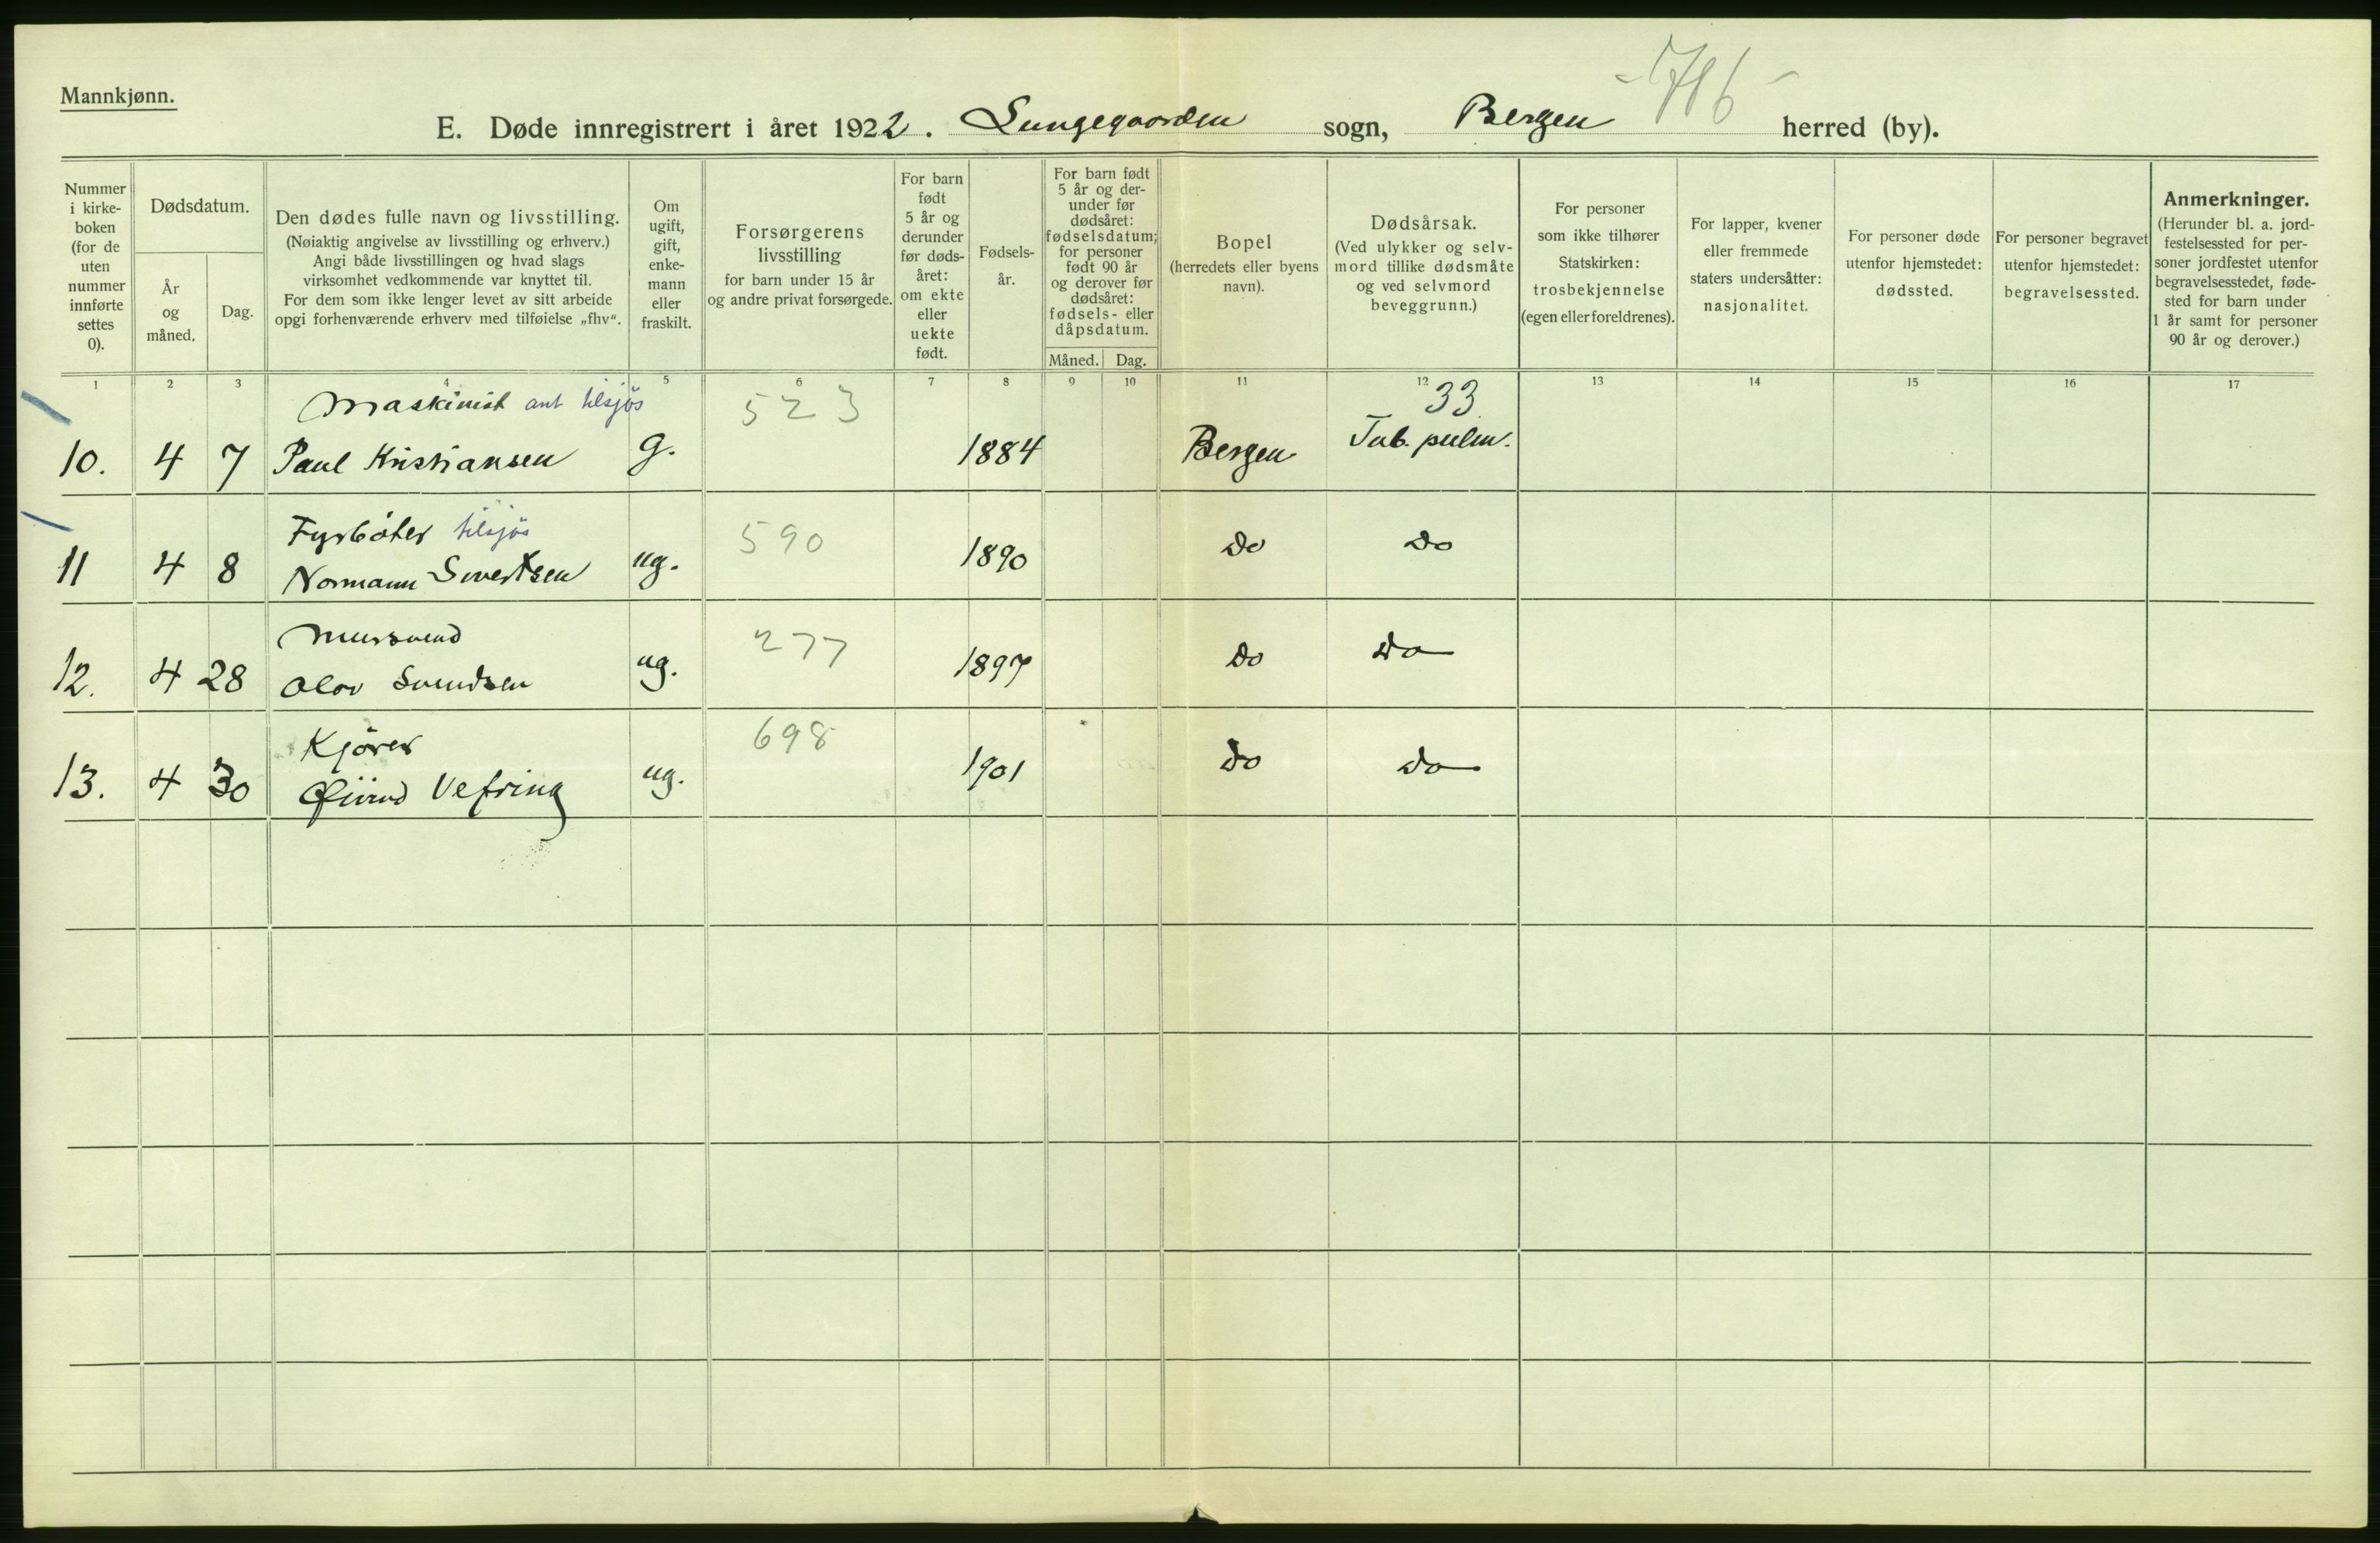 Mannkjønn.
-746-
E. Døde innregistrert i året 1922. Lungegaarden sogn, Bergen herred (by).
Nummer i kirke-boken (for de uten nummer innførte settes 0).
Dødsdatum.
År og måned.
Dag.
Den dødes fulle navn og livsstilling.
(Nøiaktig angivelse av livsstilling og erhverv.)
Angi både livsstillingen og hvad slags
virksomhet vedkommende var knyttet til.
For dem som ikke lenger levet av sitt arbeide
opgi forhenværende erhverv med tilføielse „fhv“.
Om ugift, gift, enke-mann eller fraskilt.
Forsørgerens
livsstilling
for barn under 15 år
og andre privat forsørgede.
For barn født 5 år og derunder før døds-året: om ekte eller uekte født.
Fødsels-år.
For barn født 5 år og der-under før dødsåret: fødselsdatum; for personer født 90 år og derover før dødsåret: fødsels- eller dåpsdatum.
Måned. Dag.
Bopel
(herredets eller byens navn).
Dødsårsak.
(Ved ulykker og selv-mord tillike dødsmåte og ved selvmord beveggrunn.)
For personer som ikke tilhører Statskirken: trosbekjennelse (egen eller foreldrenes).
For lapper, kvener eller fremmede staters undersåtter: nasjonalitet.
For personer døde utenfor hjemstedet: dødssted.
For personer begravet utenfor hjemstedet: begravelsessted.
Anmerkninger.
(Herunder bl. a. jord-festelsessted for per-soner jordfestet utenfor begravelsesstedet, føde-sted for barn under 1 år samt for personer 90 år og derover.)
1 2 3 4 5 6 7 8 9 10 11 12 13 14 15 16 17
Maskinist ant tilsjøs 523 33
10. 4 7 Paul Kristiansen g. 1884 Bergen Tub. pulm.
Fyrbóter tilsjøs 590
11 4 8 Normann Sivertsen ug. 1890 do do
Mursvend 277
12. 4 28 Olav Svendsen ug. 1897 do do
Kjører 698
13. 4 30 Øivind Vefring ug. 1901 do do